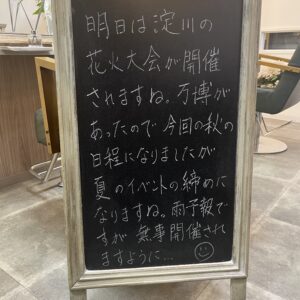 明日は淀川の
花火大会が開催
されますね。万博が
あったので今回の秋の
日程になりましたが
夏のイベントの締めに
なりますね。雨予報で
すが無事開催され
ますように…